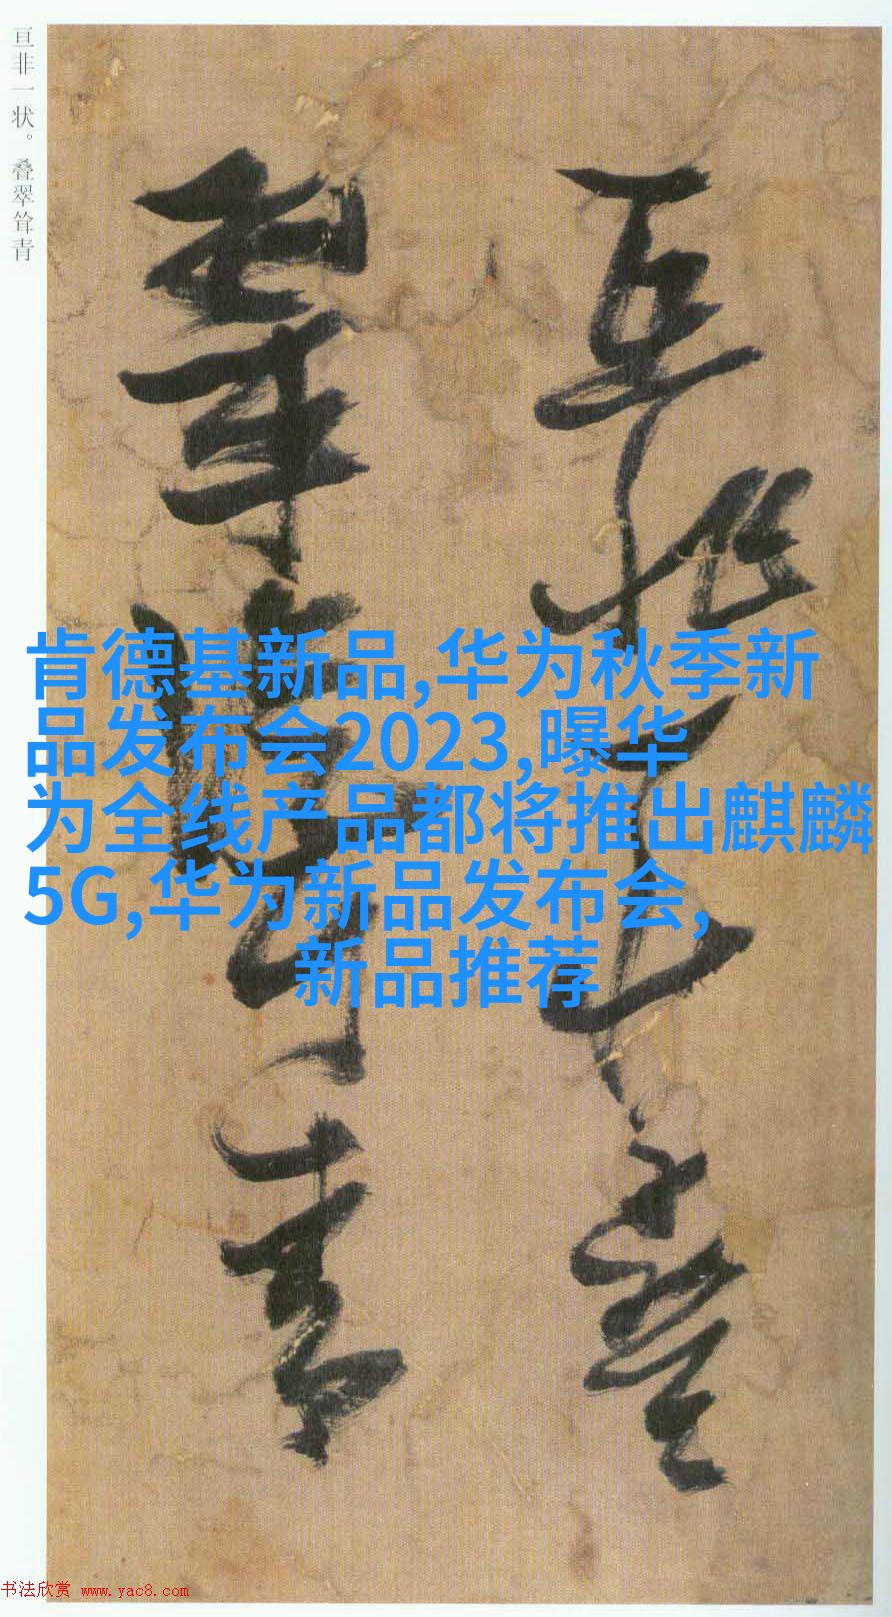 亘非一状。叠翠耸青
亘非一状叠
翠耸青
肯德基新品,华为秋季新
品发布会2023,曝华
为全线产品都将推出麒麟
5G,华为新品发布会,
新品推荐
书法欣赏 www.yac8.com